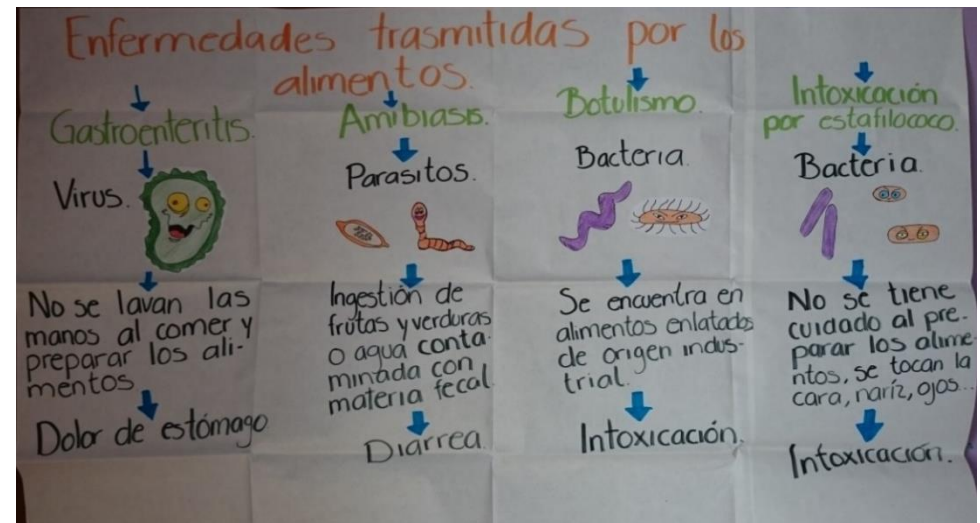 Enfermedades trasmitidas por los
alimentos.
Gastroenteritis.
Virus.
No se lavan las
manos al comer y
preparar los ali-
mentos
Dolor de estómago
Amibiasis.
Parasitos.
Ingestión de
frutas y verduras
o agua conta-
minada con
materia fecal
Diarrea.
Botulismo.
Bacteria.
Se encuentra en
alimentos enlatados
de origen indus-
trial.
Intoxicación.
Intoxicación
por estafilococo.
Bacteria.
No se tiene
cuidado al pre-
parar los alime-
ntos, se tocan la
cara, naríz, ojos...
Intoxicación.